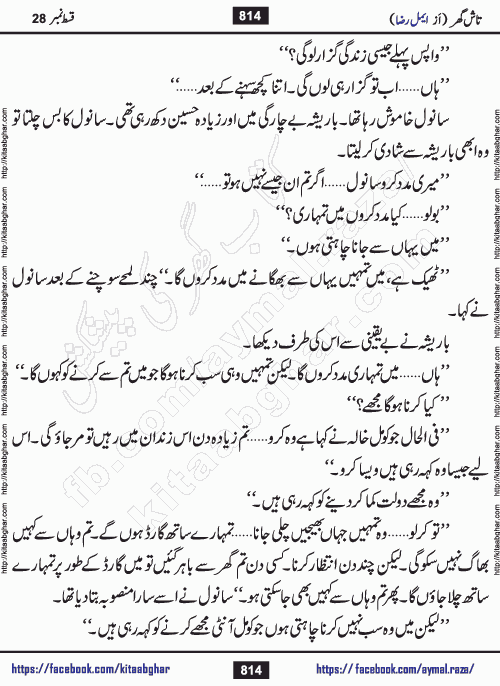 تاش گھر (از ایمل رضا) 814 قسط نمبر 28
’’واپس پہلے جیسی زندگی گزار لو گی؟‘‘
’’ہاں......اب تو گزار ہی لوں گی۔ اتنا کچھ سہنے کے بعد......‘‘
سانول خاموش رہا تھا۔ باریشہ بے چارگی میں اور زیادہ حسین دکھ رہی تھی۔ سانول کا بس چلتا تو
وہ ابھی باریشہ سے شادی کر لیتا۔
’’میری مدد کرو سانول......اگر تم ان جیسے نہیں ہو تو......‘‘
’’بولو......کیا مدد کروں میں تمہاری؟‘‘
’’میں یہاں سے جانا چاہتی ہوں۔‘‘
’’ٹھیک ہے، میں تمہیں یہاں سے بھگانے میں مدد کروں گا۔‘‘ چند لمحے سوچنے کے بعد سانول
نے کہا۔
باریشہ نے بے یقینی سے اس کی طرف دیکھا۔
’’ہاں......میں تمہاری مدد کروں گا۔ لیکن تمہیں وہی سب کرنا ہوگا جو میں تم سے کرنے کو کہوں گا۔‘‘
’’کیا کرنا ہوگا مجھے؟‘‘
’’فی الحال جو کومل خالہ نے کہا ہے وہ کرو......تم زیادہ دن اس زندان میں رہیں تو مر جاؤ گی۔ اس
لیے جیسا وہ کہہ رہی ہیں ویسا کرو۔‘‘
’’وہ مجھے دولت کما کر دینے کو کہہ رہی ہیں۔‘‘
’’تو کر لو......وہ تمہیں جہاں بھیجیں چلی جانا......تمہارے ساتھ گارڈ ہوں گے۔ تم وہاں سے کہیں
بھاگ نہیں سکو گی۔ لیکن چند دن انتظار کرنا۔ کسی دن تم گھر سے باہر گئیں تو میں گارڈ کے طور پر تمہارے
ساتھ چلا جاؤں گا۔ پھر تم وہاں سے کہیں بھی جا سکتی ہو۔‘‘ سانول نے اسے سارا منصوبہ بتا دیا تھا۔
’’لیکن میں وہ سب نہیں کرنا چاہتی ہوں جو کومل آنٹی مجھے کرنے کو کہہ رہی ہیں۔‘‘
https://facebook.com/kitaabghar 814 https://facebook.com/aymal.raza/
http://kitaabghar.com http://kitaabghar.com http://kitaabghar.com http://kitaabghar.com http://kitaabghar.com http://kitaabghar.com
http://kitaabghar.com http://kitaabghar.com http://kitaabghar.com http://kitaabghar.com http://kitaabghar.com http://kitaabghar.com
کتاب گھر کی پیشکش
fb.com/aymalraza/
kitaabghar.com